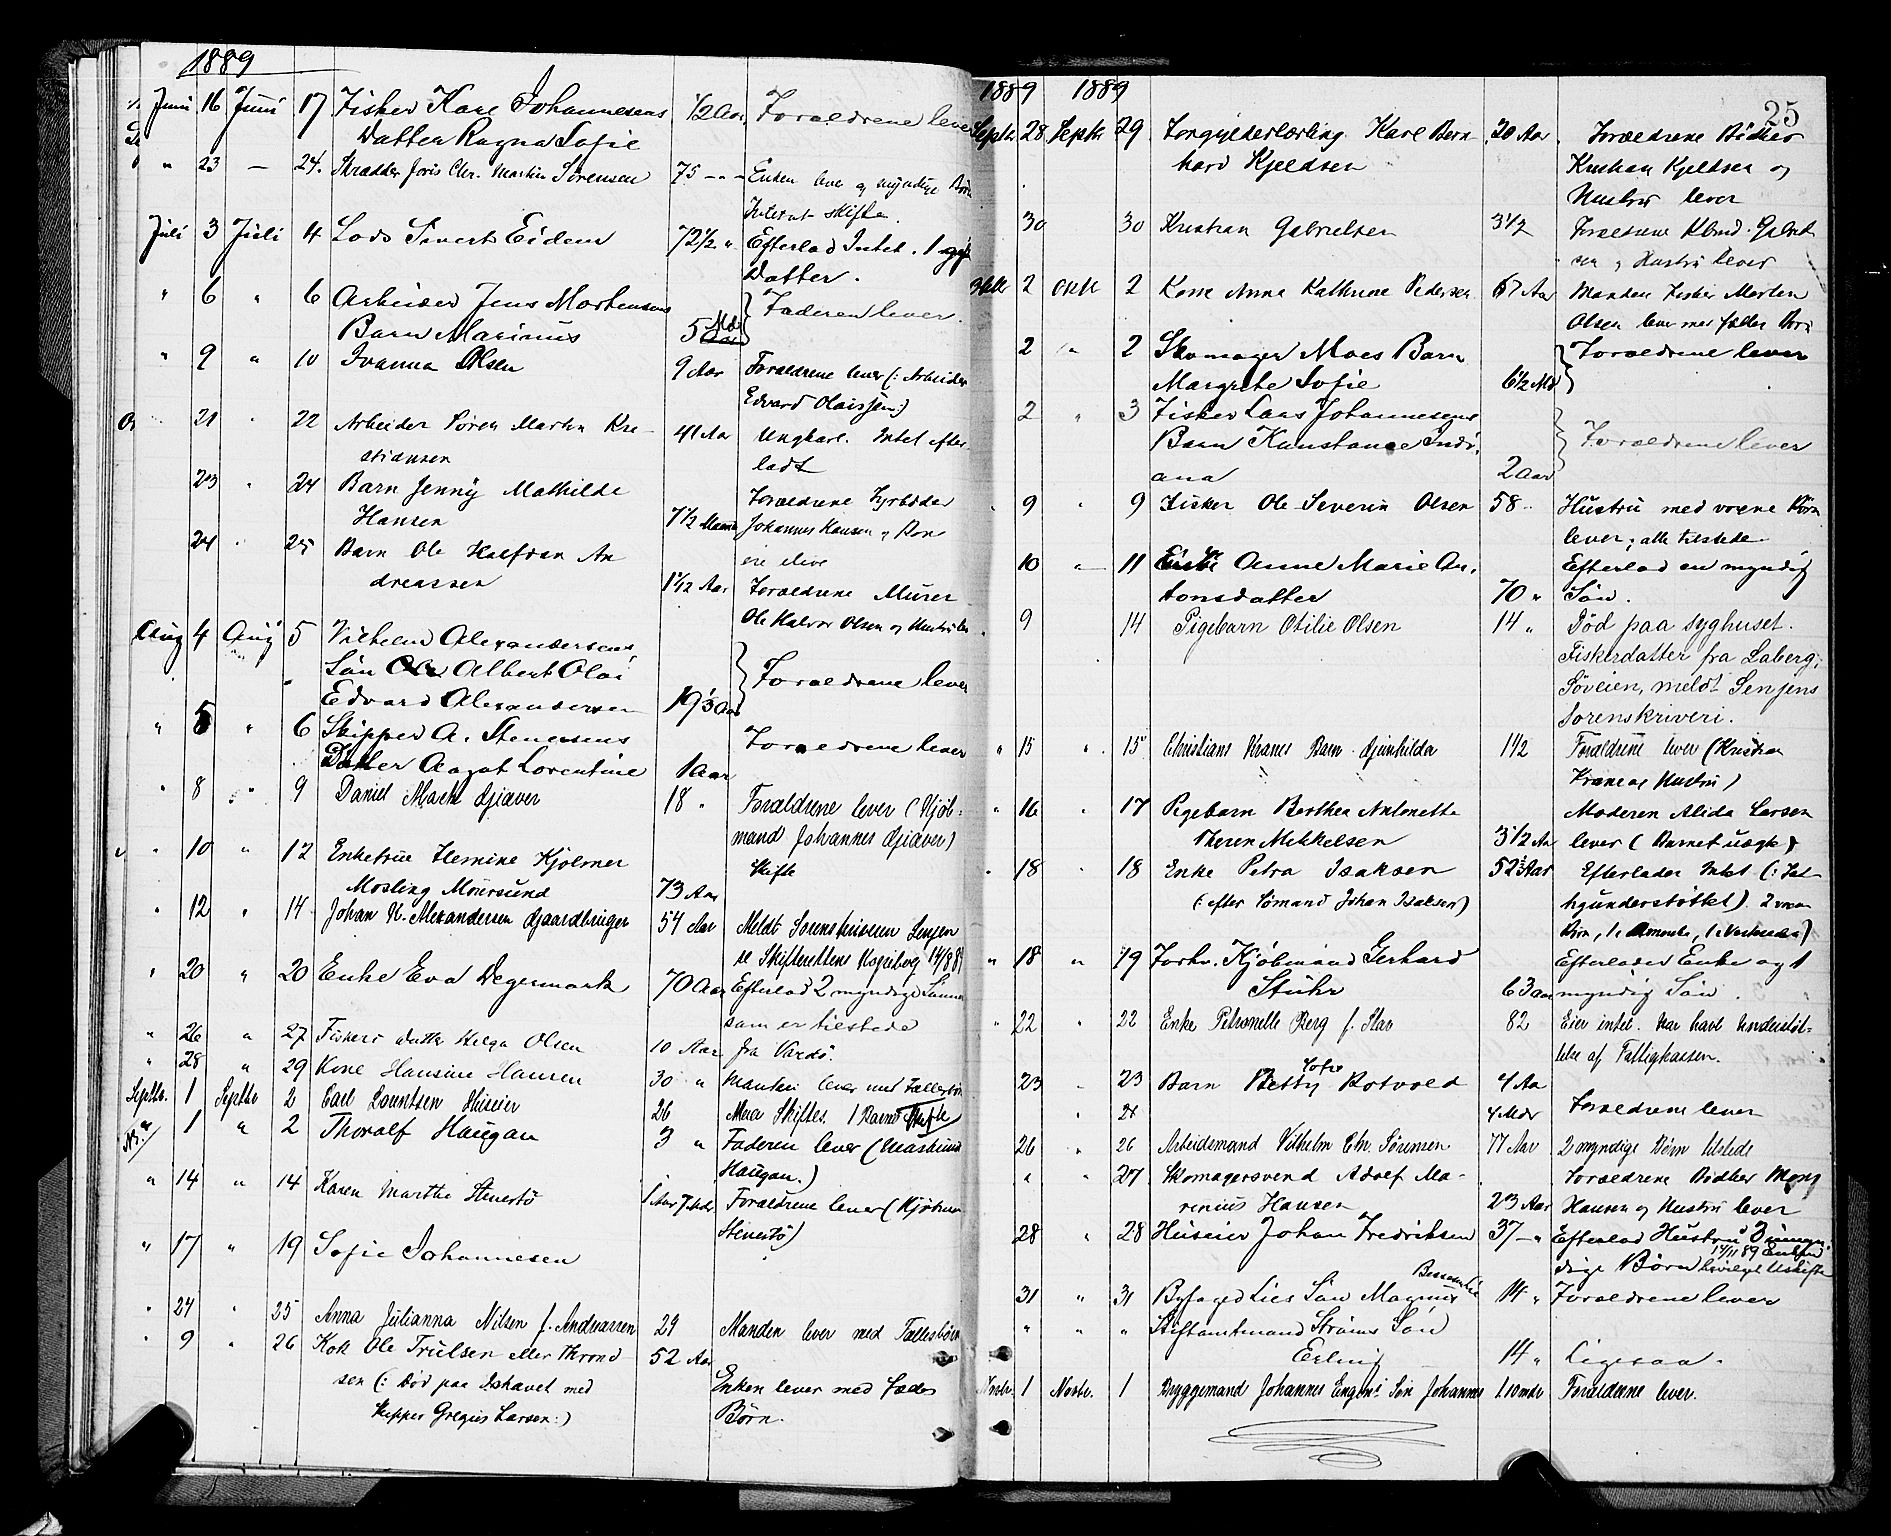 1889
Juni 16 Juni 17 Fisker Karl Johannesens 1/2 Aar. Forældrene lever
Datter Ragna Sofie
" 23 — 24. Skrædder Joris Chr. Martin Sørensen 75 - - Enken lever og myndige Børn
skifte.
Juli 3 Juli 4 Lods Sivert Eidem 72 1/2 " Efterlod Intet. 1 gift
Datter.
" 6 " 6 Arbeider Jens Mortensens Faderen lever.
Barn Marinus 5 Mdr
" 9 " 10 Ivanna Olsen 9 Aar Forældrene lever (: Arbeider
Edvard Olaissen:)
21 " 22 Arbeider Søren Martin Kri- 41 Aar Ungkarl. Intet efter-
stiansen ladt
23 " 24 Barn Jenny Mathilde Forældrene Fyrbøder
Hansen 7 1/2 Maaned Johannes Hansen og Kone
ere ilive
24 " 25 Barn Ole Halfdan An
dreassen 1 1/12 Aar Forældrene Murer
Ole Halvor Olsen og Hustru lev
Aug 4 Aug 5 Vilhelm Alexandersens
Søn Albert Olai Forældrene lever
Edvard Alexandersen 19 1/3 Aar
" 5 " 6 Skipper A. Stenersens Forældrene lever
Datter Aagot Lorentine 1 Aar
" 8 " 9 Daniel Mack Gjæver 18 " Forældrene lever (Kjøb-
mand Johannes Gjæver)
" 10 " 12 Enkefrue Hemine Kjolmer Skifte
Mosling Moursund 73 Aar
" 12 " 14 Johan H. Alexandersen Gaardbruger 54 Aar Meldt Sorenskriveren Senjen
se Skifterettens Kopibog 14/8 89
" 20 " 20 Enke Eva Degermark 70 Aar Efterlod 2 myndige Sønner
som er tilstede
" 26 " 27 Fiskers Datter Helga Olsen 10 Aar fra Vardø.
" 28 " 29 Kone Hansine Hansen 30 " Manden lever med Fællesbørn
Septbr. 1 Septbr 2 Carl Lorentsen Huseier 26 Maa Skiftes. 1 Barn Skifte
" 1 " 2 Thoralf Haugan 3 " Faderen lever (Maskinist
Haugan.)
" 14 " 14 Karen Marthe Stenersø 1 Aar 7 Mdr. Forældrene lever (Kjøbm
Stenersø)
" 17 " 19 Sofie Johannesen
" 24 " 25 Anna Julianna Nilsen f. Andreassen 29 Manden lever med Fællesbørn
" 9 " 26 Kok Ole Trulsen eller Thrond- 52 Aar
sen (: død paa Ishavet med Enken lever med fælles
Skipper Gregus Larsen:) Børn.
25
1889 1889
Septbr 28 Septbr 29 Karl Bern- 20 Aar. Forældrene Bødker
hard Kjeldsen Kristian Kjeldsen og
Hustru lever
30 30 Kristian Gabrielsen 3 1/2 Forældrene Gabriel
sen og Hustru lever
2 Oktbr 2 Kone Anna Kathrine Pedersen 67 Aar Manden Fisker Morten
Olsen lever med fælles Børn
2 " 2 Skomager Moes Barn Forældrene lever
Margrete Sofie 6 1/2 Md
2 " 3 Fisker Lars Johannesens
Barn Kunstance Indi- Forældrene lever
ana 2 Aar
9 " 9 Fisker Ole Severin Olsen 58 " Hustru med voxne Børn
lever; alle tilstede
10 " 11 Enke Anne Marie An- Efterlod en myndig
tonsdatter 70 " Søn.
9 14 Pigebarn Otilie Olsen 14 " Død paa syghuset.
Fiskerdatter fra Laberg,
Søveien, meldt Senjens
Sorenskriveri.
" 15 " 15 Christians Kranes Barn Gunhilda 1 1/2 Forældrene lever (Kristian
Krane og Hustru)
" 16 " 17 Pigebarn Berthea Antonette Moderen Alida Larsen
Mikkelsen 3 1/2 Aar lever (Barnet uægte)
" 18 " 18 Enke Petra Isaksen 52 Aar Efterlader Intet (: Fat-
(: efter Sømand Johan Isaksen) tigunderstøttet). 2 voxne
Børn
" 18 " 19 Forhv. Kjøbmand Gerhard Efterlader Enke og 1
Stuhr 63 Aar myndig Søn.
" 22 " 22 Enke Petronelle Berg f. Figenschau 82 Eier intet. Har havt Understøt-
telse af Fattigkassen.
23 " 23 Barn Betty Sofie Rotvold 4 Aa
" 24 4 Mdr Forældrene lever
26 " 26 Arbeidsmand Vilhelm Chr. Sørensen 77 Aar 2 myndige Børn tilstede
" " 27 Skomagersvend Adolf Ma- Forældrene Bødker Mons
renius Hansen 23 Aar Hansen og Hustru lever
28 " 28 Huseier Johan Fredriksen 37 - " Efterlod Hustru 3 umyn-
dige Børn 14/11 89 Enken bevilget Uskifte
31 " 31 Byfoged Lies Søn Magnus 14 " Forældrene lever
" " " Stiftamtmand Strøms Søn
Erling 14 " Ligesaa.
Novbr. 1 Novbr. 1 Byggemand Johannes Engens Søn Johannes 1 10 mdr Forældrene lever.